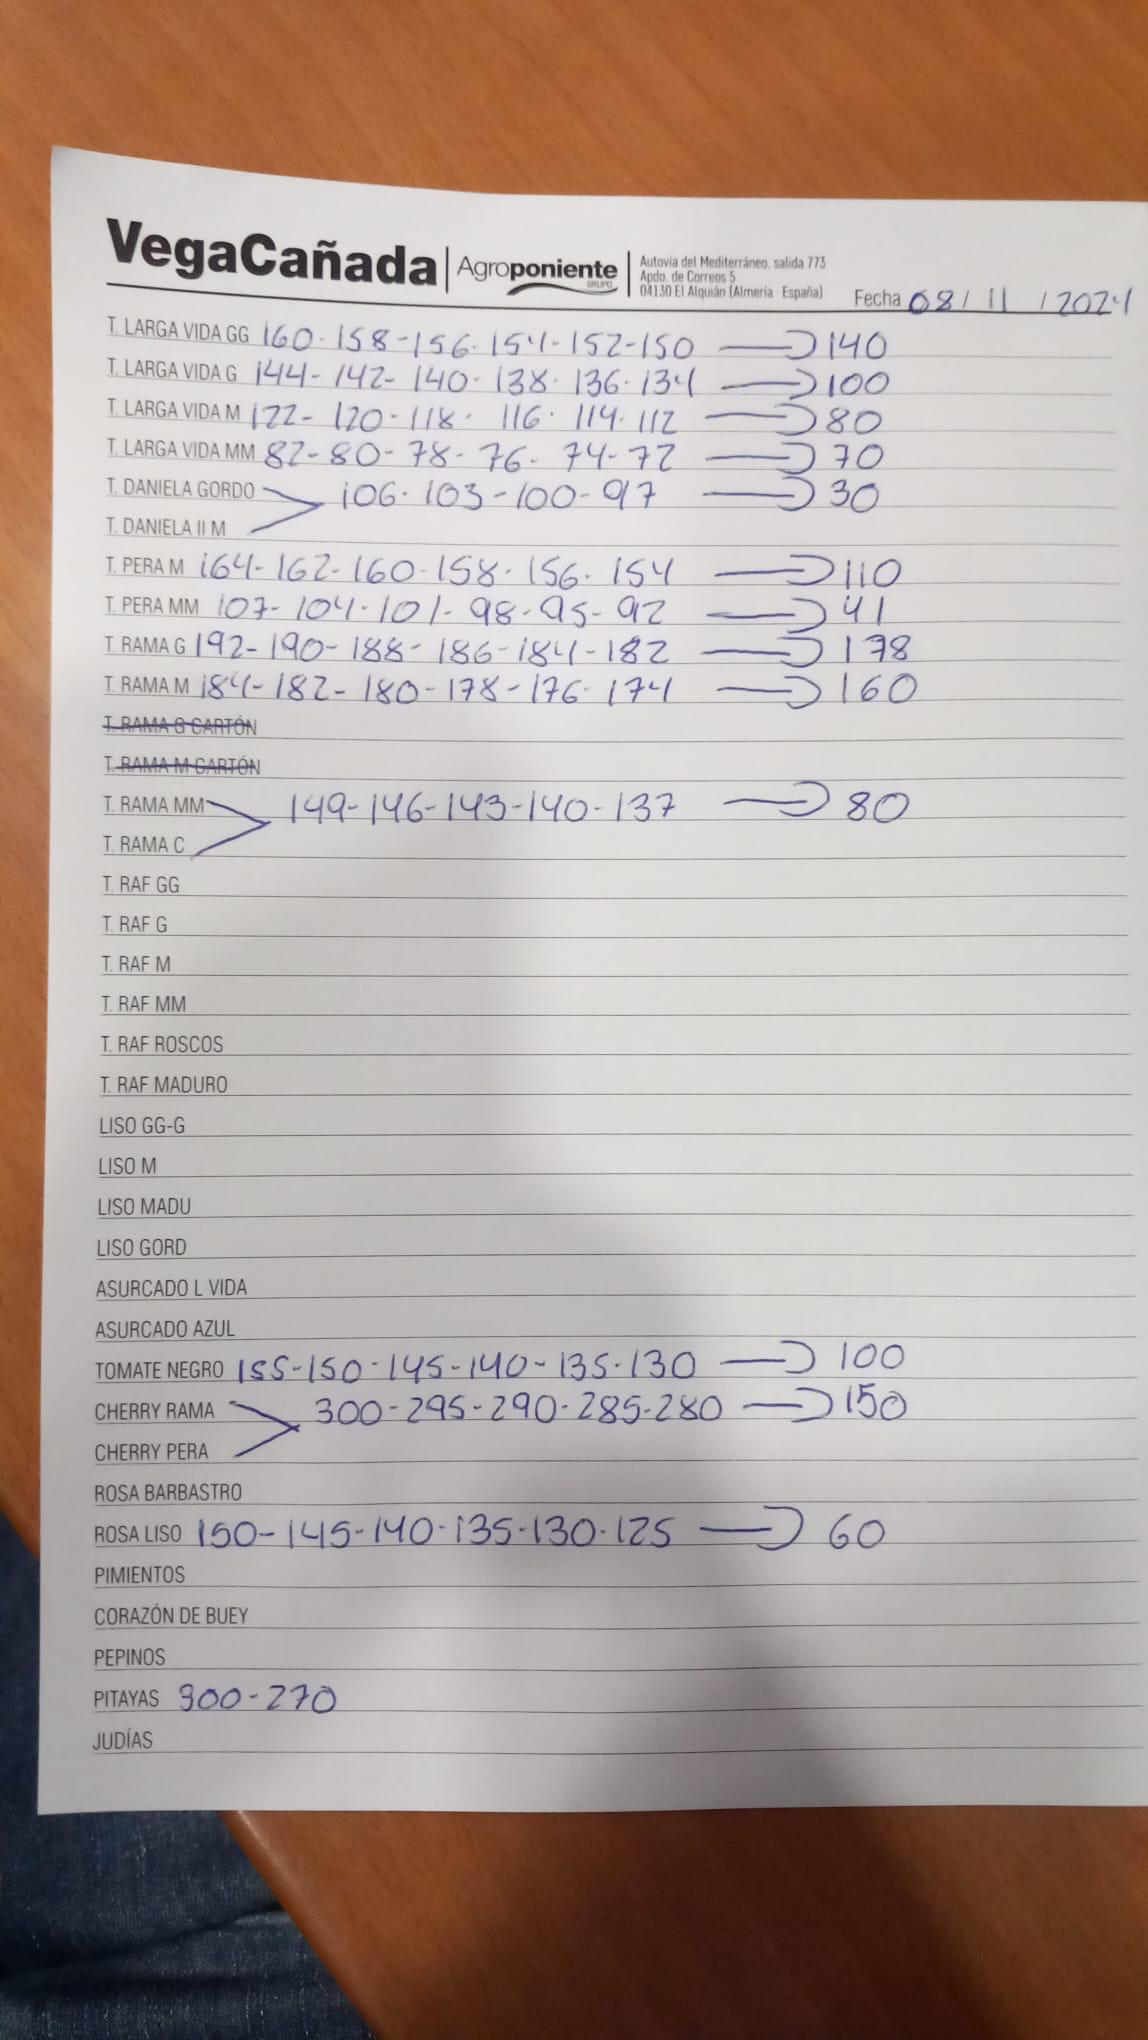 VegaCañada
Agroponiente
GRUPO
Autovía del Mediterráneo, salida 773
Apdo. de Correos 5
04130 El Alquián (Almería - España)
Fecha 08 / 11 / 2024
T. LARGA VIDA GG 160-158-156-154-152-150 → 140
T. LARGA VIDA G 144-142-140-138-136-134 → 100
T. LARGA VIDA M 122-120-118-116-114-112 → 80
T. LARGA VIDA MM 82-80-78-76-74-72 → 70
T. DANIELA GORDO 106-103-100-97 → 30
T. DANIELA II M
T. PERA M 164-162-160-158-156-154 → 110
T. PERA MM 107-104-101-98-95-92 → 41
T. RAMA G 192-190-188-186-184-182 → 178
T. RAMA M 184-182-180-178-176-174 → 160
T. RAMA G CARTÓN
T. RAMA M CARTÓN
T. RAMA MM 149-146-143-140-137 → 80
T. RAMA C
T. RAF GG
T. RAF G
T. RAF M
T. RAF MM
T. RAF ROSCOS
T. RAF MADURO
LISO GG-G
LISO M
LISO MADU
LISO GORD
ASURCADO L VIDA
ASURCADO AZUL
TOMATE NEGRO 155-150-145-140-135-130 → 100
CHERRY RAMA 300-295-290-285-280 → 150
CHERRY PERA
ROSA BARBASTRO
ROSA LISO 150-145-140-135-130-125 → 60
PIMIENTOS
CORAZÓN DE BUEY
PEPINOS
PITAYAS 300-270
JUDÍAS